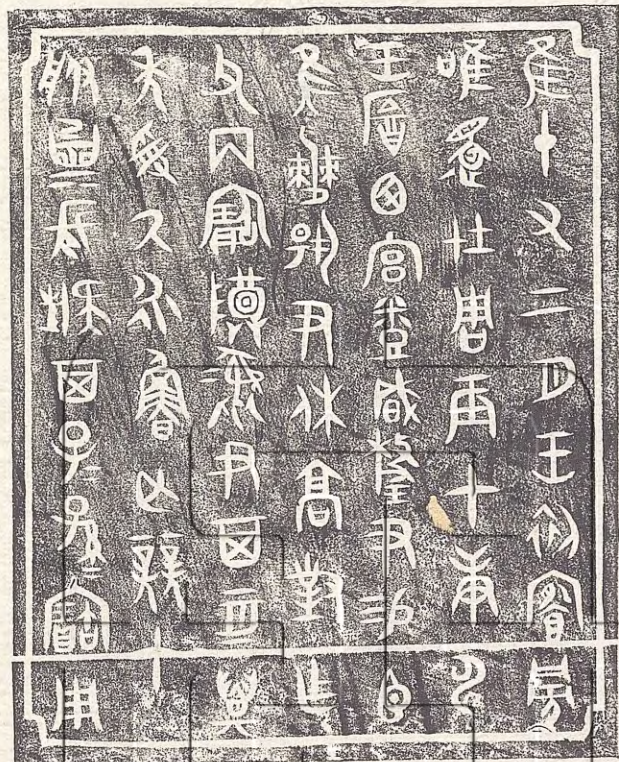 隹十又二月王初饔旁
唯還在周辰才庚申
王酓西宮烝咸釐尹易臣
隹小僰揚尹休高對乍
父丙寶尊彝尹其亙萬
年受氒永魯亡競才
服㠱長疑其子子孫孫寶用